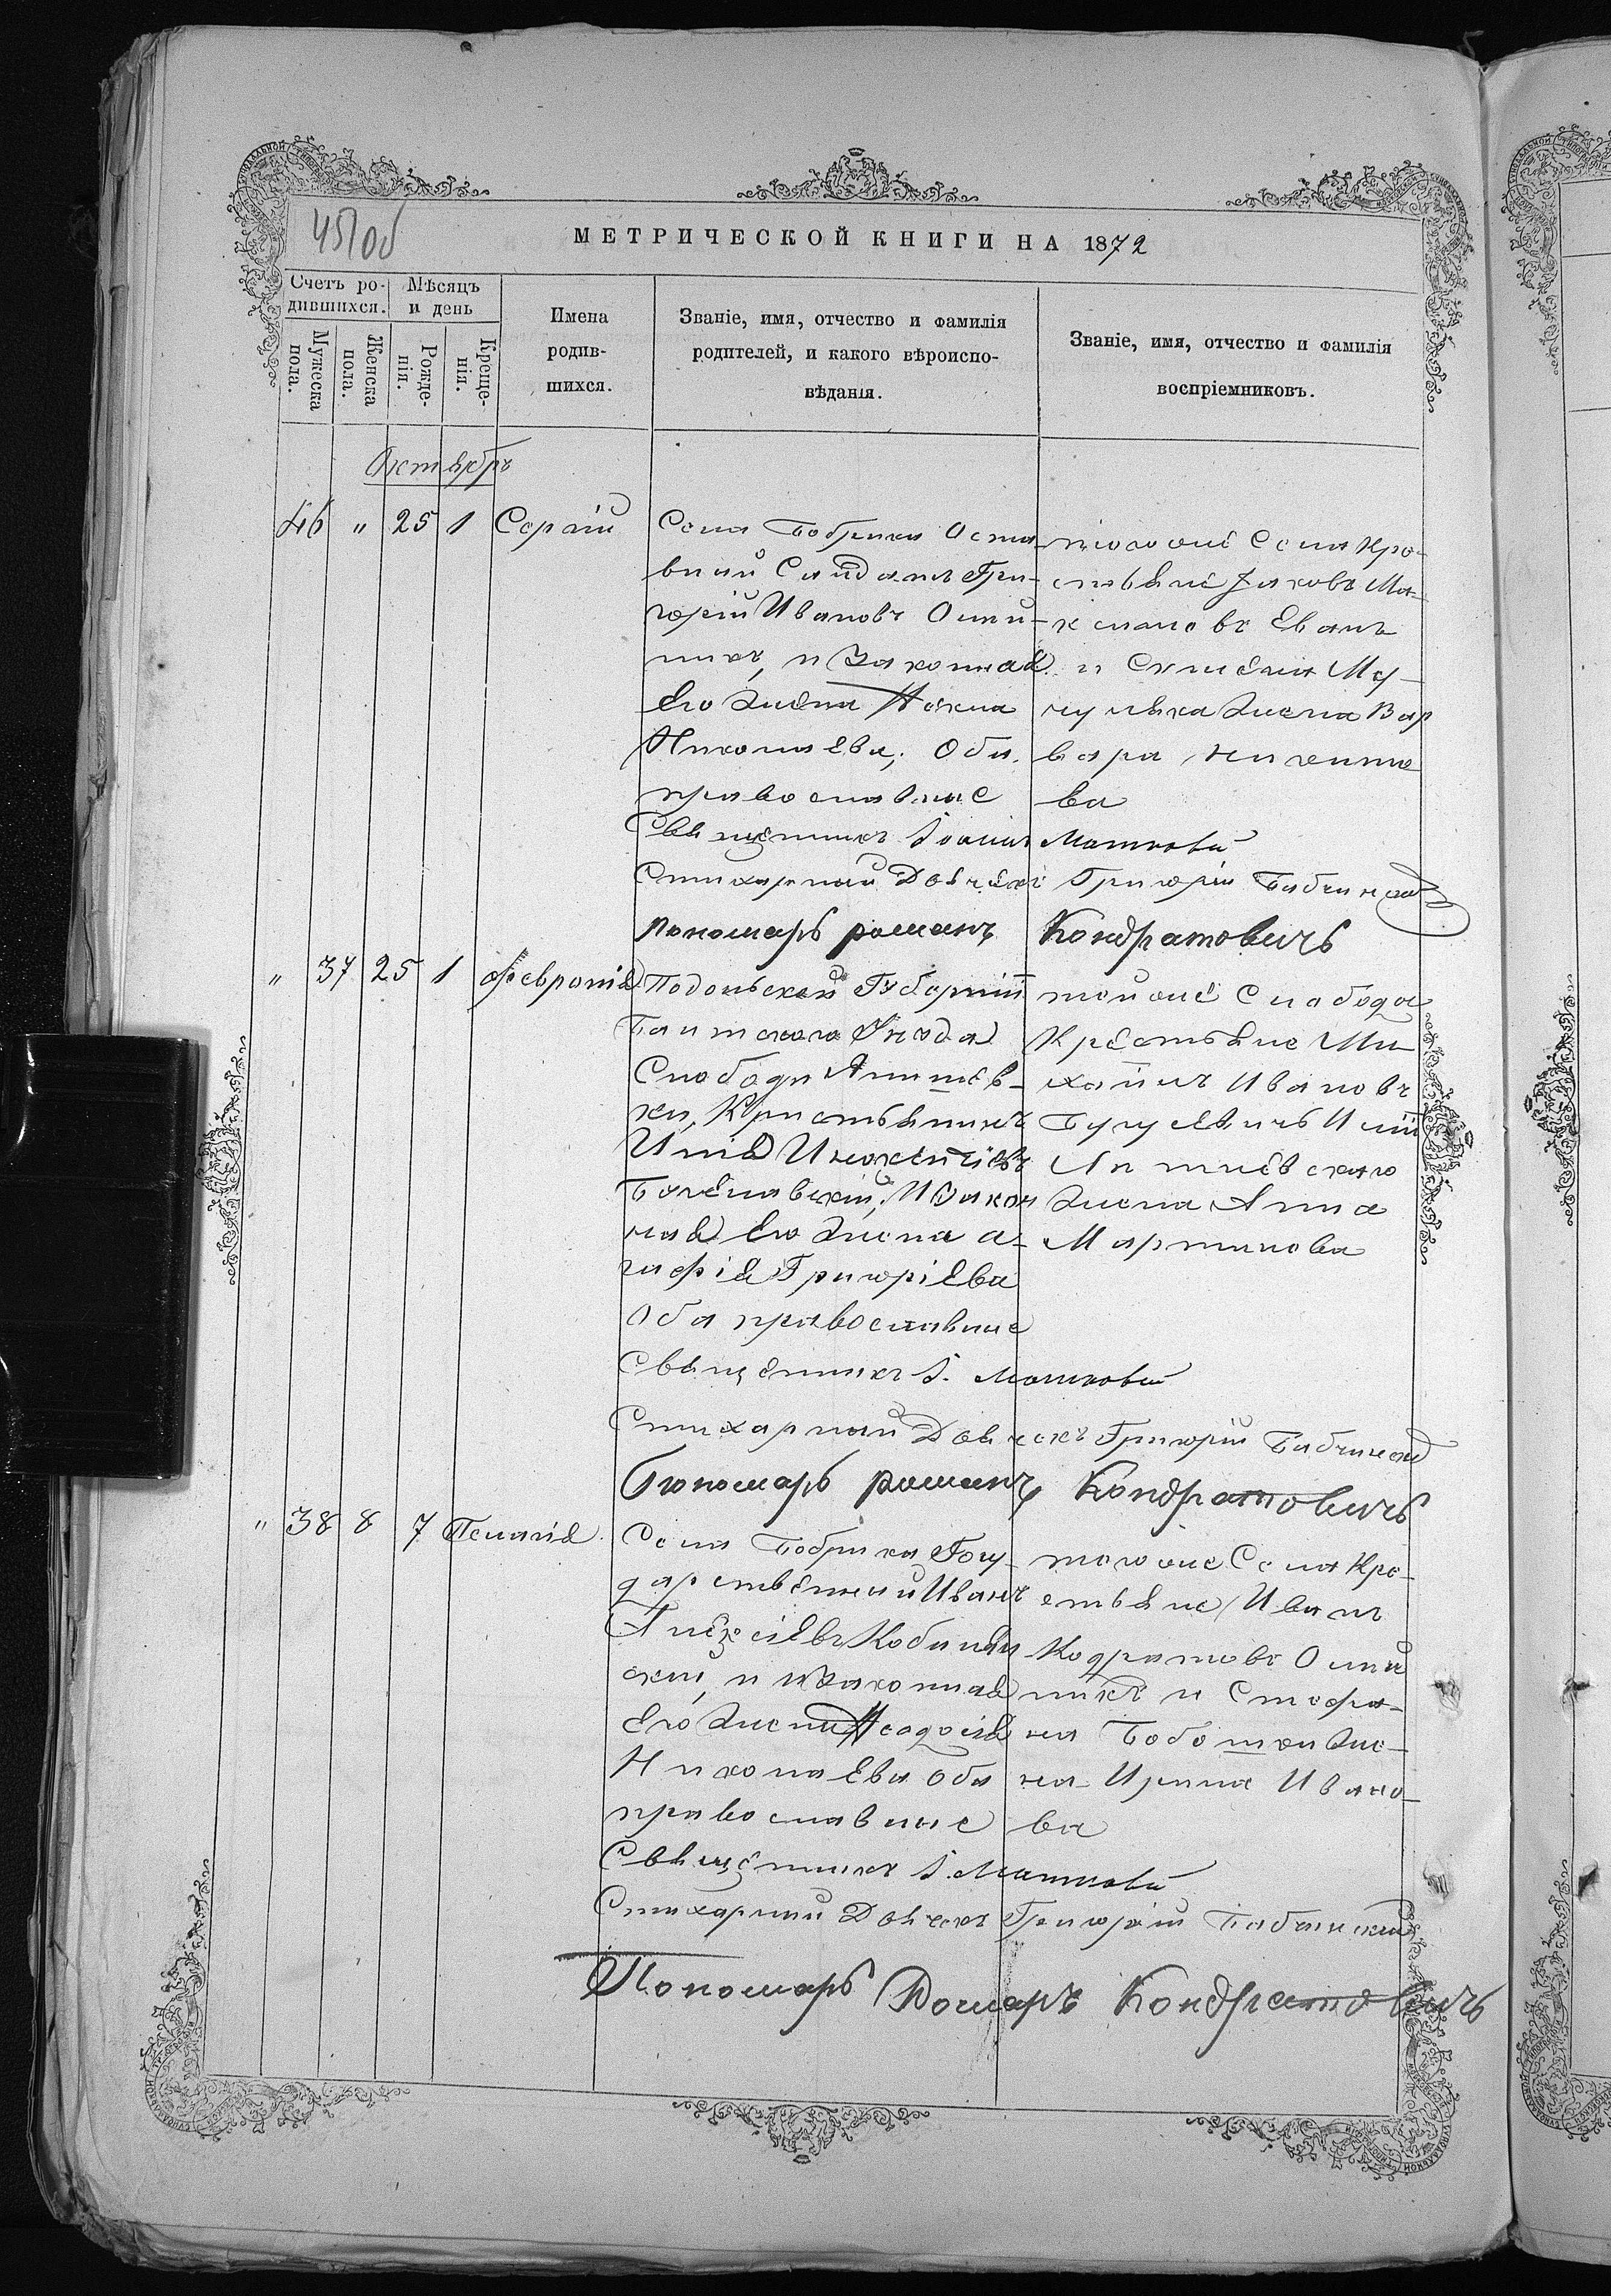 451об
МЕТРИЧЕСКОЙ КНИГИ НА 1872
Счетъ ро-
дившихся.
Мѣсяцъ
и день
Мужеска
пола.
Женска
пола.
Рожде-
нія.
Креще-
нія.
Имена
родив-
шихся.
Званіе, имя, отчество и фамилія
родителей, и какого вѣроиспо-
вѣданія.
Званіе, имя, отчество и фамилія
воспріемниковъ.
Октябръ
46 " 25 1 Сергій
Села Бобрика Оста-
вний Салдатъ Гри-
горій Ивановъ Олій-
никъ, и Законная
Его Жена Фекла
Николаева, Оба
православные
тогоже Села Кре-
стьяне Яковъ Ма-
Еванъ
и
Жена Вар
вара Никито
ва
Священникъ Іоаннъ Матковій
Стихарный Дьячекъ Григорій Бабчинскій
Пономарь Романъ Кондратовичъ
" 37 25 1 Февронія
Подольской Губерніи
Балтского Уѣзда
Слободи
ки, Кристьянинъ
Илія
И Закон
ная Его Жена А-
гафія Григоріева
Оба православные
тойже Слободы
Крестьяне Ми-
хаилъ Ивановъ
И
Жена Анна
Мартинова
Священникъ І. Матковій
Стихарный Дьячекъ Григорій Бабчинскій
Пономарь Романъ Кондратовичъ
" 38 8 7 Пелагія
Села Бобрика Госу-
дарственний Иванъ
Алексіевъ
скій, и Законная
Его Жена Феодосія
Николаева Оба
православные
тогоже Села Кре-
стьяне Иванъ
Кодратовъ Олій
никъ и Стефа-
на Же-
на Ирина Ивано-
ва
Священникъ І. Матковій
Стихарный Дьячекъ Григорій Бабчинскій
Пономарь Романъ Кондратовичъ